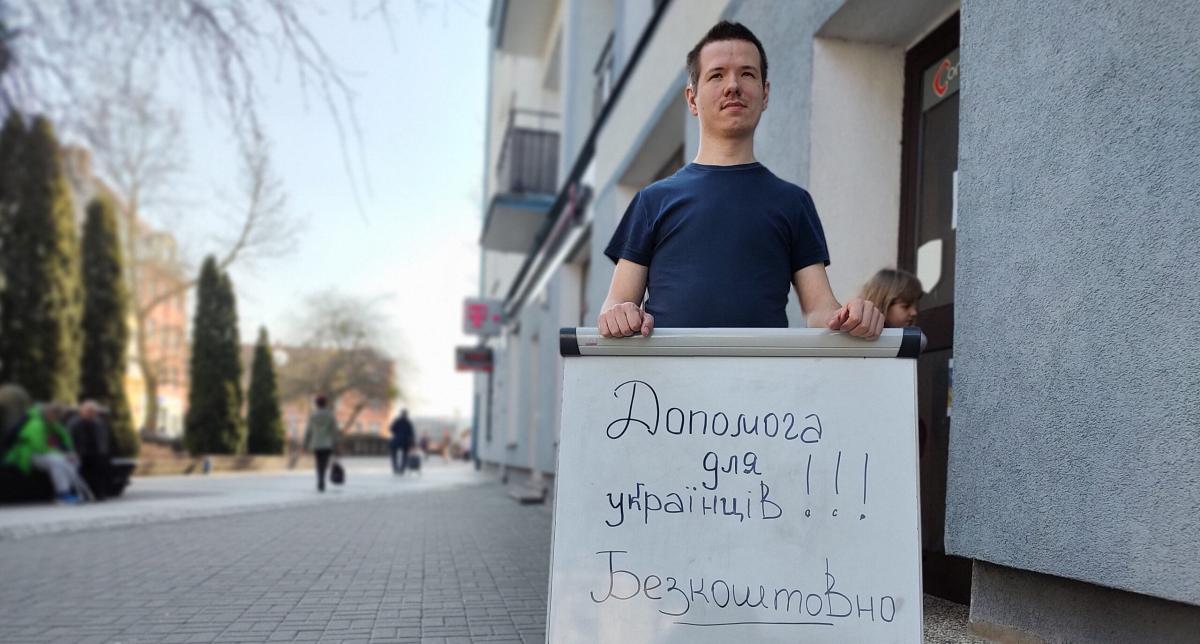 Допомога
для
українців !!!
Безкоштовно